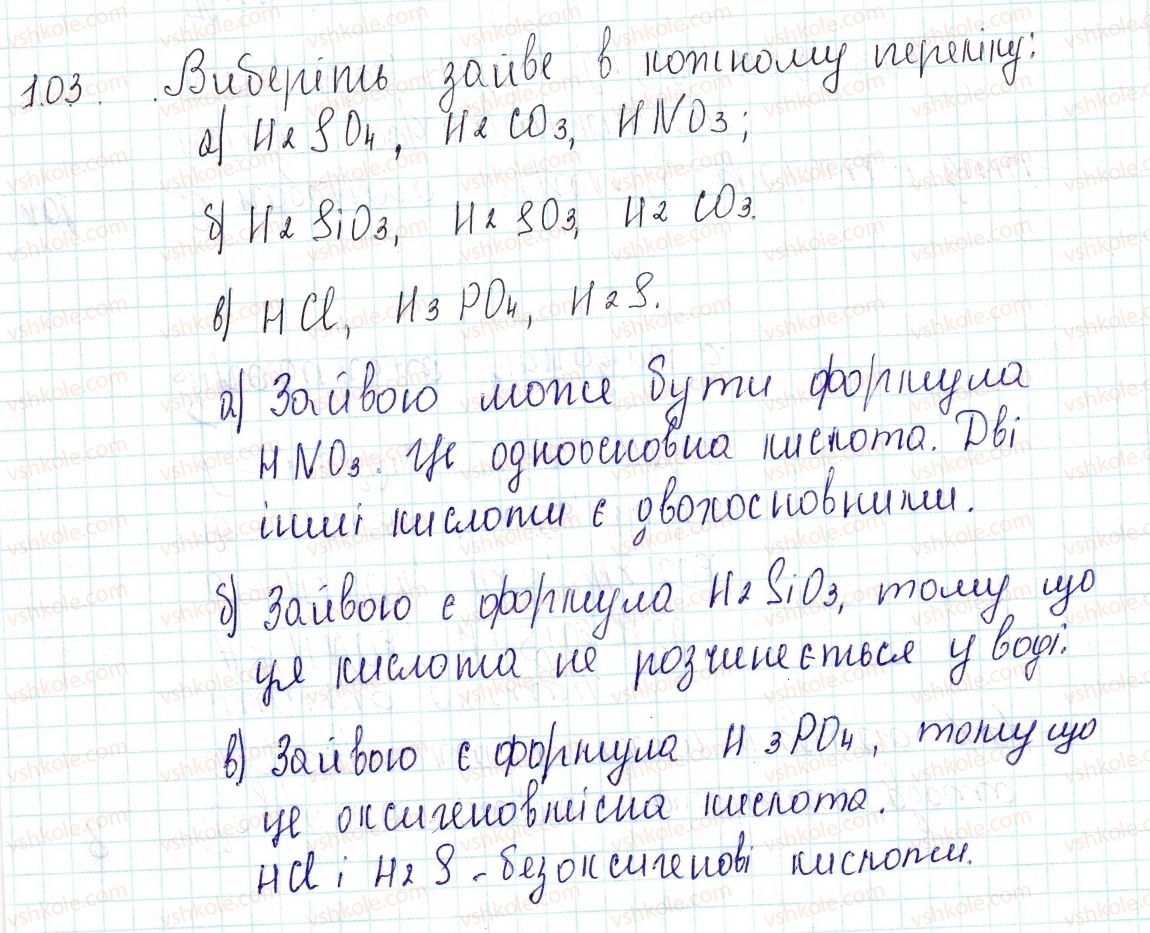 103. Виберіть зайве в кожному переліку:
а) H2SO4, H2CO3, HNO3;
б) H2SiO3, H2SO3, H2CO3.
в) HCl, H3PO4, H2S.
а) Зайвою може бути формула
HNO3. Це одноосновна кислота. Дві
інші кислоти є двохосновними.
б) Зайвою є формула H2SiO3, тому що
ця кислота не розчинється у воді.
в) Зайвою є формула H3PO4, тому що
це оксигеновмісна кислота.
HCl і H2S - безоксигенові кислоти.
vshkole.com